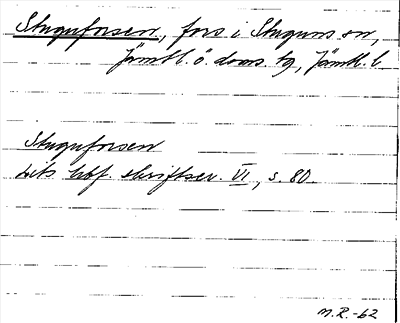 Stuguforsen, fors i Stuguns sn,
Jämtl. ö. doms. tg, Jämtl. l.
Stuguforsen
Lits hbf. skriftser. VI, s. 80.
M.R.-62